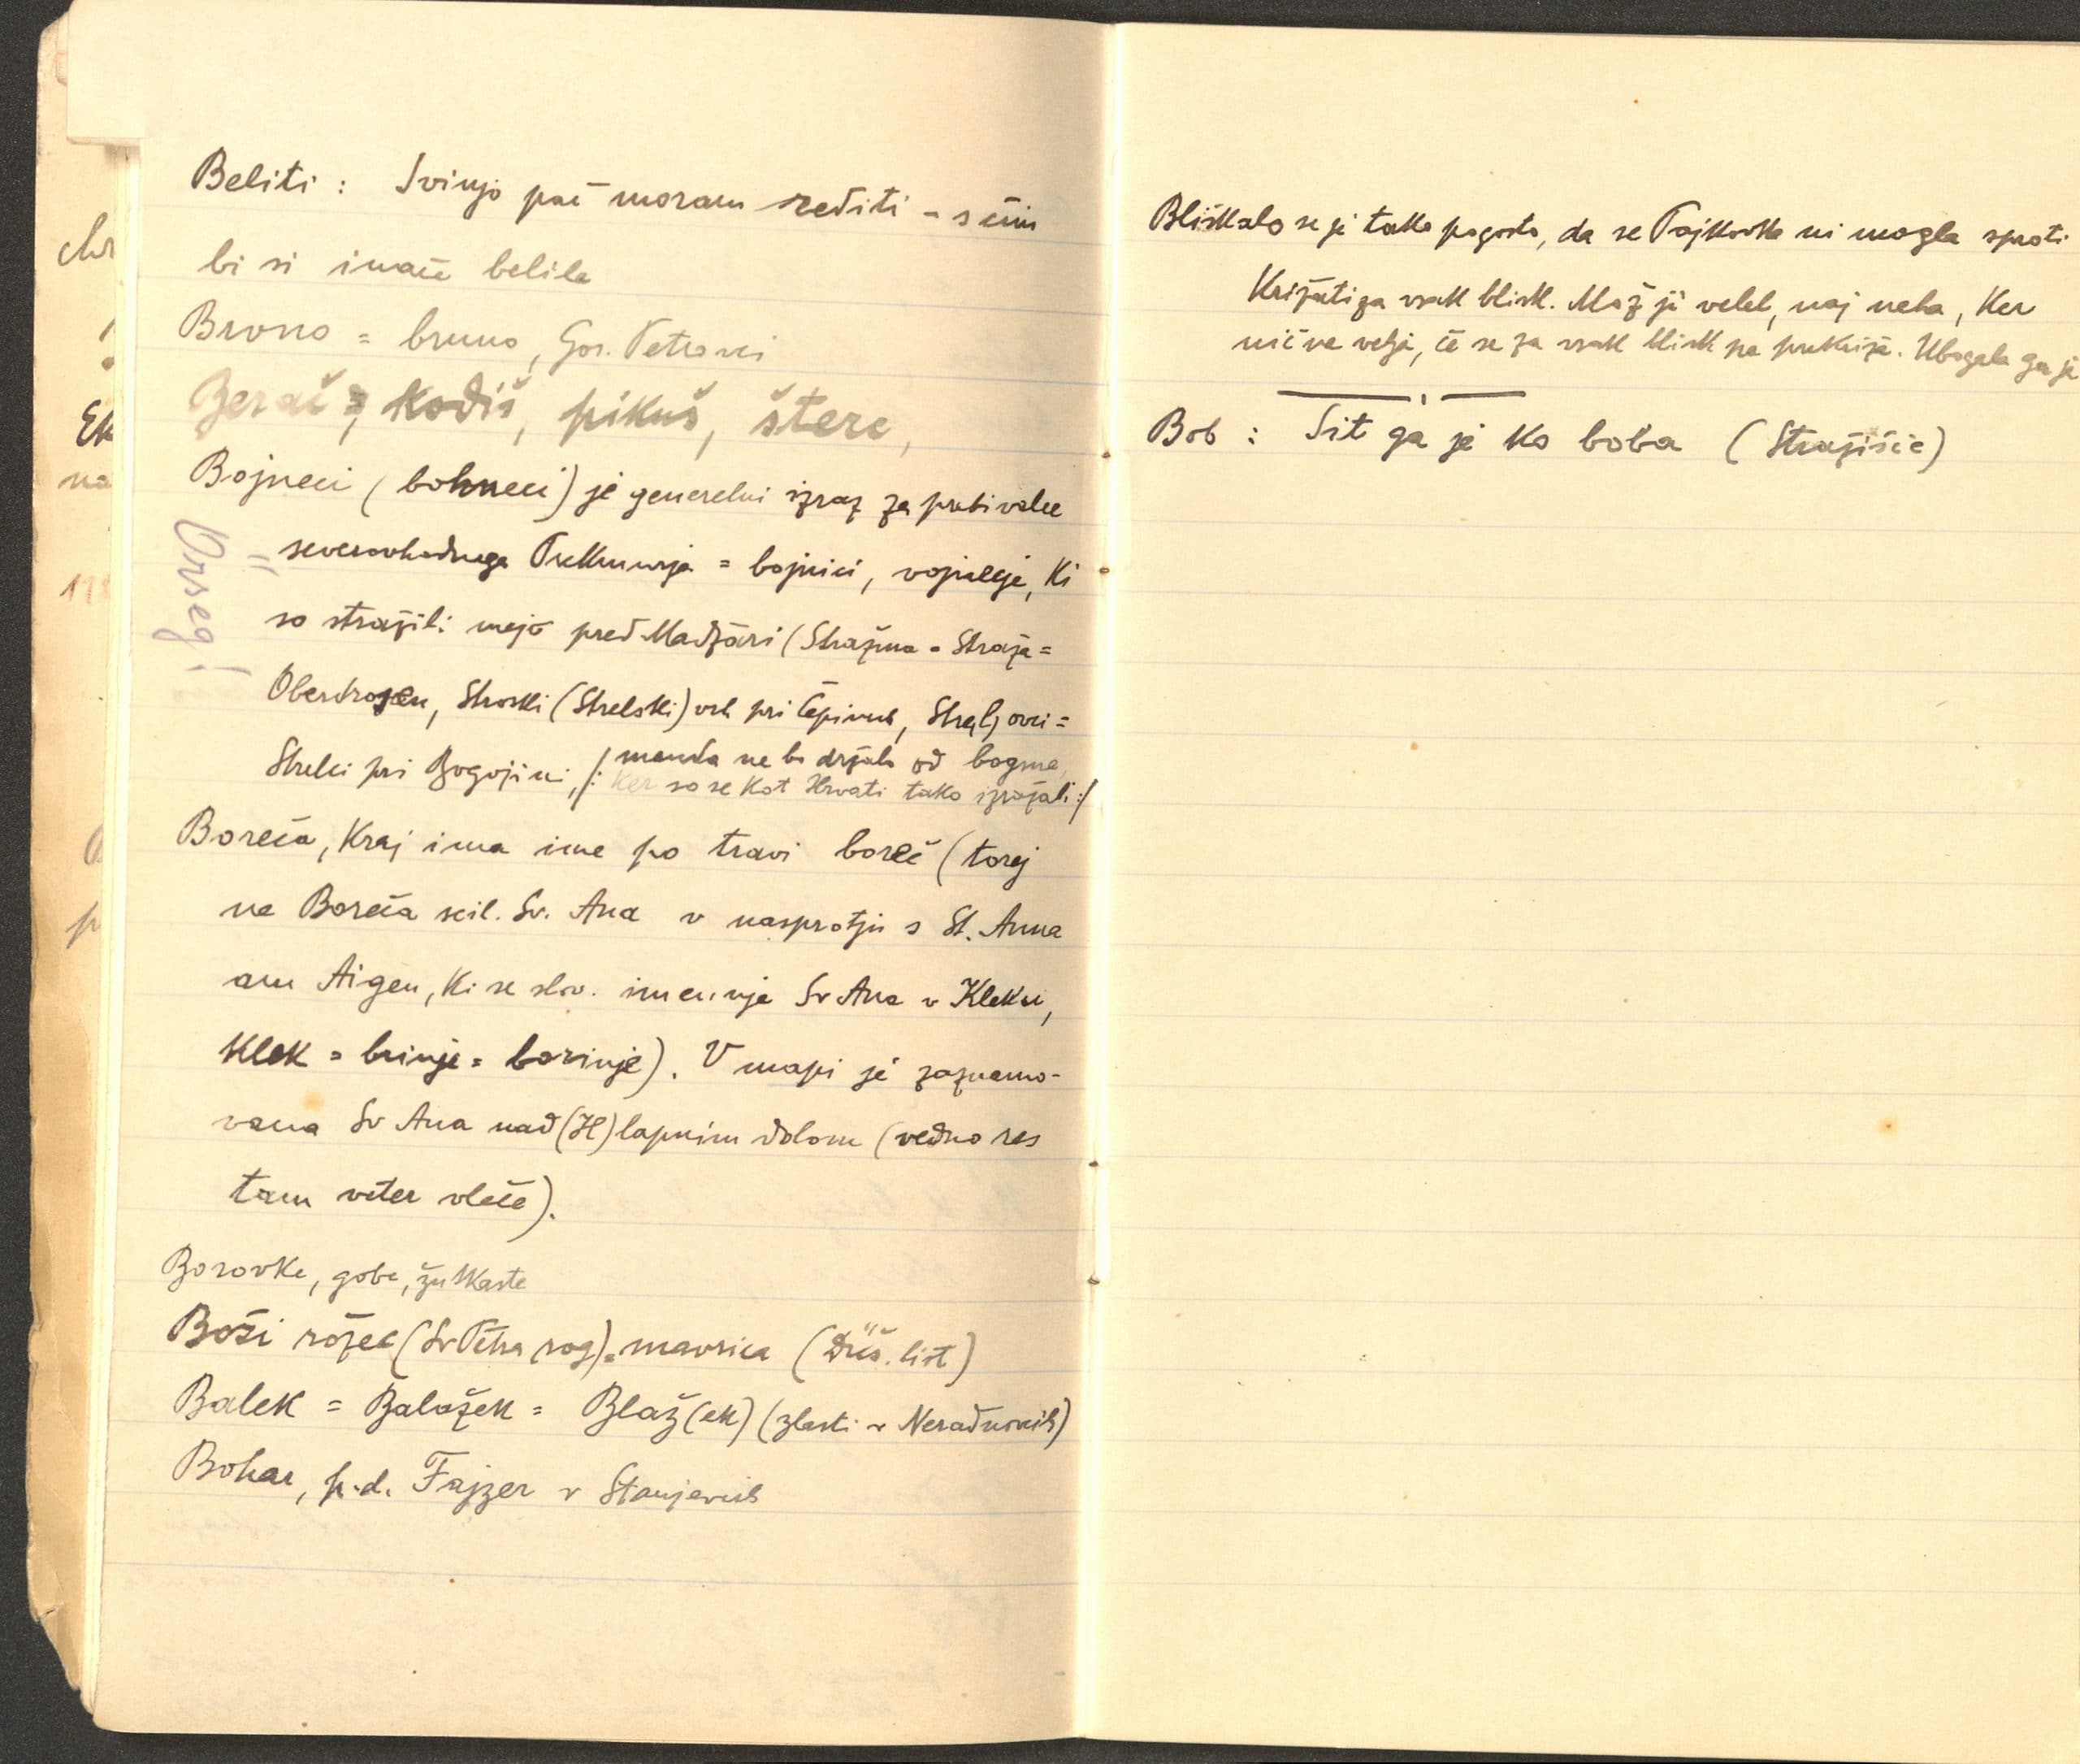 Beliti: Svinjo pač moram rediti - s čim
bi si inače belila
Brvno = bruno, Gor. Petrovci
Berač, kodiš, pikuš, štere,
Bojneci (bohneci) je generelni izraz za prebivalce
severovhodnega Prekmurja = bojnici, vojščaje, ki
so stražili mejo pred Madžari (Stražma = Straža =
Oberdrosen, Stroški (Strelski) vrh pri Čepincih, Streljovci =
Strelci pri Bogojini, /: menda ne bo držalo od bogme,
ker so se kot Hrvati tako izražali :/
Őrség!
Boreča, kraj ima ime po travi boreč (torej
ne Boreča scil. Sv. Ana v nasprotju s St. Anna
am Aigen, ki se slov. imenuje Sv Ana v Kleku,
Klek = brinje = borinje). V mapi je zaznamo-
vana Sv Ana nad (H)lapnim dolom (vedno res
tam veter vleče).
Borovke, gobe, žutkaste
Boži rožec (Sv Petra rog) = mavrica (Düš. list)
Balek = Balažek = Blaž(ek) (zlasti v Neradnovcih)
Bohar, p.d. Fajzer v Stanjevcih
Bliskalo se je tako pogosto, da se Pojkovka ni mogla sproti
križati za vsak blisk. Mož ji velel, naj neha, ker
nič ne velja, če se za vsak blisk ne prekriža. Ubogala ga je
Bob: Sit ga je ko boba (Stražišče)